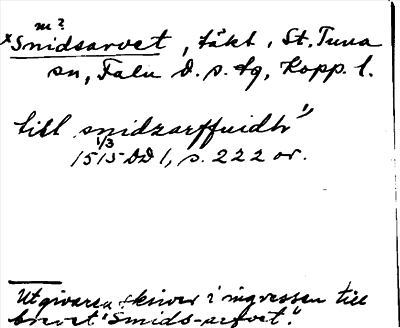 m?
*Snidsarvet, täkt, St. Tuna
sn, Falu d. s. tg, Kopp. l.
till snidzarffuidh"
1/3
1515 DD 1, s. 222 or.
Utgivaren skriver i ingressen till
brevet "Smids-arfvet".